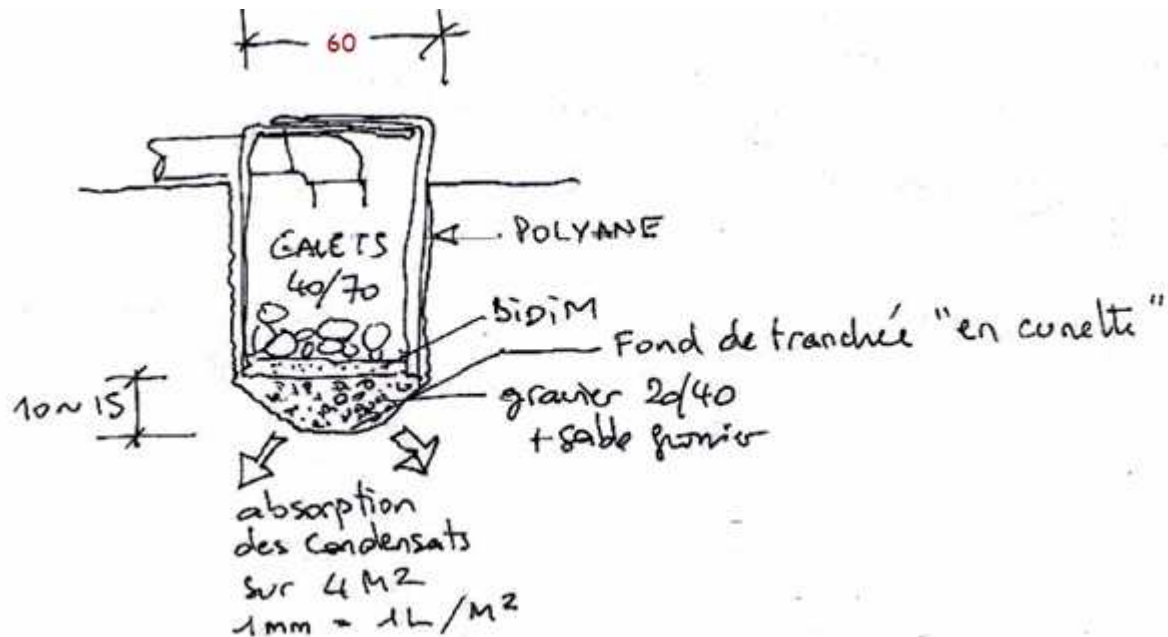 60
GALETS
40/70
POLYANE
BiDiM
Fond de tranchée "en cunette"
gravier 20/40
+ sable grossier
10~15
absorption
des condensats
sur 4 M2
1mm = 1L/M²